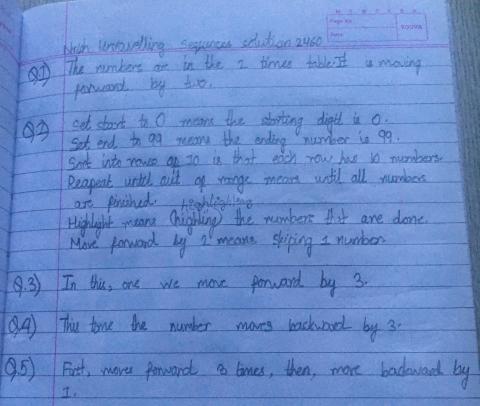 M T W T F S S
Page No.:
Date:
YOUVA
Nrich Unravelling Sequences solution 2460
Q1) The numbers are in the 2 times table. It is moving
forward by two.
Q2) Set start to 0 means the starting digit is 0.
Set end to 99 means the ending number is 99.
Sort into rows of 10 is that each row has 10 numbers.
Reapeat until out of range means until all numbers
are finished. heghlighting
Highlight means (highling) the numbers that are done.
Move forward by 2 means skiping 1 number.
Q.3) In this, one we move forward by 3.
Q.4) This time the number moves backward by 3.
Q.5) First, moves forward 3 times, then, move backward by
1.